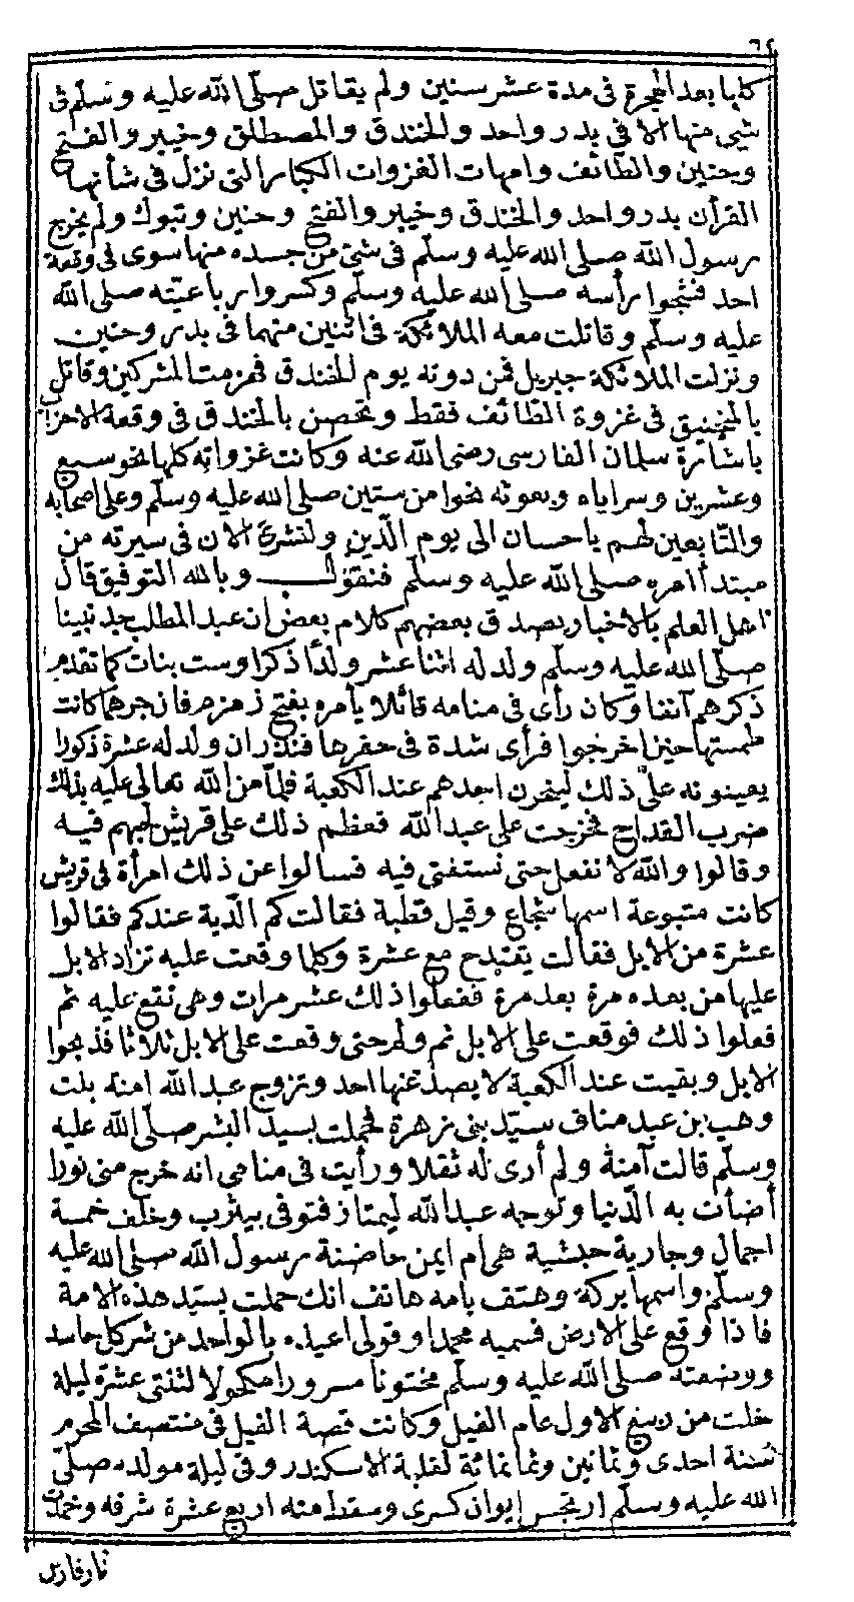 ٦٤
كلها بعد الهجرة فى مدة عشر سنين ولم يقاتل صلّى الله عليه وسلّم فى
شيئ منها الا في بدر واحد والخندق والمصطلق وخيبر والفتح
وحنين والطائف وامهات الغزوات الكبار التى نزل فى شأنها
القرآن بدر واحد والخندق وخيبر والفتح وحنين وتبوك ولم يخرج
رسول الله صلى الله عليه وسلّم فى شئ من جسده منها سوى فى وقعة
احد فشجوا رأسه صلى الله عليه وسلّم وكسروا رباعيّته صلى الله
عليه وسلّم وقاتلت معه الملائكة فى اثنين منهما فى بدر وحنين
ونزلت الملائكة جبريل فمن دونه يوم الخندق فهزمت المشركين وقاتل
بالمنجنيق فى غزوة الطائف فقط وتحصن بالخندق فى وقعة الاحزاب
باشارة سلمان الفارسى رضى الله عنه وكانت غزواته كلها نحو سبع
وعشرين وسراياه وبعوثه نحوا من ستين صلى الله عليه وسلّم وعلى اصحابه
والتّابعين لهم باحسان الى يوم الدّين ولنشرع الآن فى سيرته من
مبتدأ امره صلى الله عليه وسلّم فنقول وبالله التوفيق قال
اهل العلم بالاخبار يصدق بعضهم كلام بعض ان عبد المطلب جد نبينا
صلّى الله عليه وسلّم ولد له اثنا عشر ولدًا ذكرا وست بنات كما تقدم
ذكرهم آنفا وكان رأى فى منامه قائلا يأمره بفتح زمزم فان جرهما كانت
طمستها حين اخرجوا فرأى شدة فى حفرها فنذر ان ولد له عشرة ذكورا
يعينونه على ذلك لينحرن احدهم عند الكعبة فلما من الله تعالى عليه بذلك
ضرب القداح فخرجت على عبد الله فعظم ذلك على قريش لحبهم فيه
وقالوا والله لا نفعل حتى نستفتى فيه فسالوا عن ذلك امرأة فى قريش
كانت متبوعة اسمها شجاع وقيل قطبة فقالت كم الدّية عندكم فقالوا
عشرة من الابل فقالت يقتدح مع عشرة وكلما وقعت عليه تزاد الابل
عليها من بعده مرة بعد مرة ففعلوا ذلك عشر مرات وهى تقع عليه ثم
فعلوا ذلك فوقعت على الابل ثم ولم حتى وقعت على الابل ثلاثا فذبحوا
الابل وبقيت عند الكعبة لا يصد عنها احد وتزوج عبد الله امنة بنت
وهب بن عبد مناف سيّد بنى زهرة فحملت بسيد البشر صلّى الله عليه
وسلّم قالت آمنة ولم أرى له ثقلا ورأيت فى منامى انه خرج منى نورا
أضأت به الدّنيا وتوجه عبد الله ليمتاز فتوفى بيثرب وخلف خمسة
اجمال وجارية حبشية هى ام ايمن حاضنة رسول الله صلى الله عليه
وسلّم واسمها بركة وهتف بامه هاتف انك حملت بسيّد هذه الامة
فاذا وقع على الارض فسميه محمدا وقولى اعيذه بالواحد من شر كل حاسد
ووضعته صلى الله عليه وسلّم مختونا مسرورا مكحولا لثنتى عشرة ليلة
خلت من ربيع الاول عام الفيل وكانت قصة الفيل فى منتصف المحرم
سنة احدى وثمانين وثمانمائة لغلبة الاسكندر وفى ليلة مولده صلّى
الله عليه وسلّم ارتجس إيوان كسرى وسقط منه اربع عشرة شرفه وخمدت
نار فارس